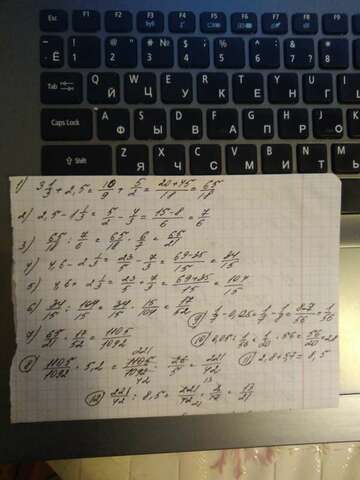 Esc F1 F2 F3 F4 F5 F6 F7 F8
~ Ё ! 1 @ 2 " # 3 № $ 4 ; % 5 ^ 6 : & 7 ? * 8
Tab Q Й W Ц E У R К T Е Y Н U Г
Caps Lock A Ф S Ы D В F А G П H Р J О
Shift Z Я X Ч C С V М B И N Т
1) 3 1/9 + 2,5 = 10/9 + 5/2 = 20+45/18 = 65/18
2) 2,5 - 1 1/3 = 5/2 - 4/3 = 15-8/6 = 7/6
3) 65/18 : 7/6 = 65/18 · 6/7 = 65/21
4) 4,6 - 2 1/3 = 23/5 - 7/3 = 69-35/15 = 34/15
5) 4,6 + 2 1/3 = 23/5 + 7/3 = 69+35/15 = 104/15
6) 34/15 : 104/15 = 34/15 · 15/104 = 17/52
9) 1/7 - 0,125 = 1/7 - 1/8 = 8-7/56 = 1/56
7) 65/21 · 17/52 = 1105/1092
10) 0,05 : 1/56 = 1/20 · 56 = 56/20 = 2,8
8) 1105/1092 · 5,2 = 1105/1092 · 26/5 = 221/42
11) 2,8 + 5,7 = 8,5
12) 221/42 : 8,5 = 221/42 · 2/17 = 13/21